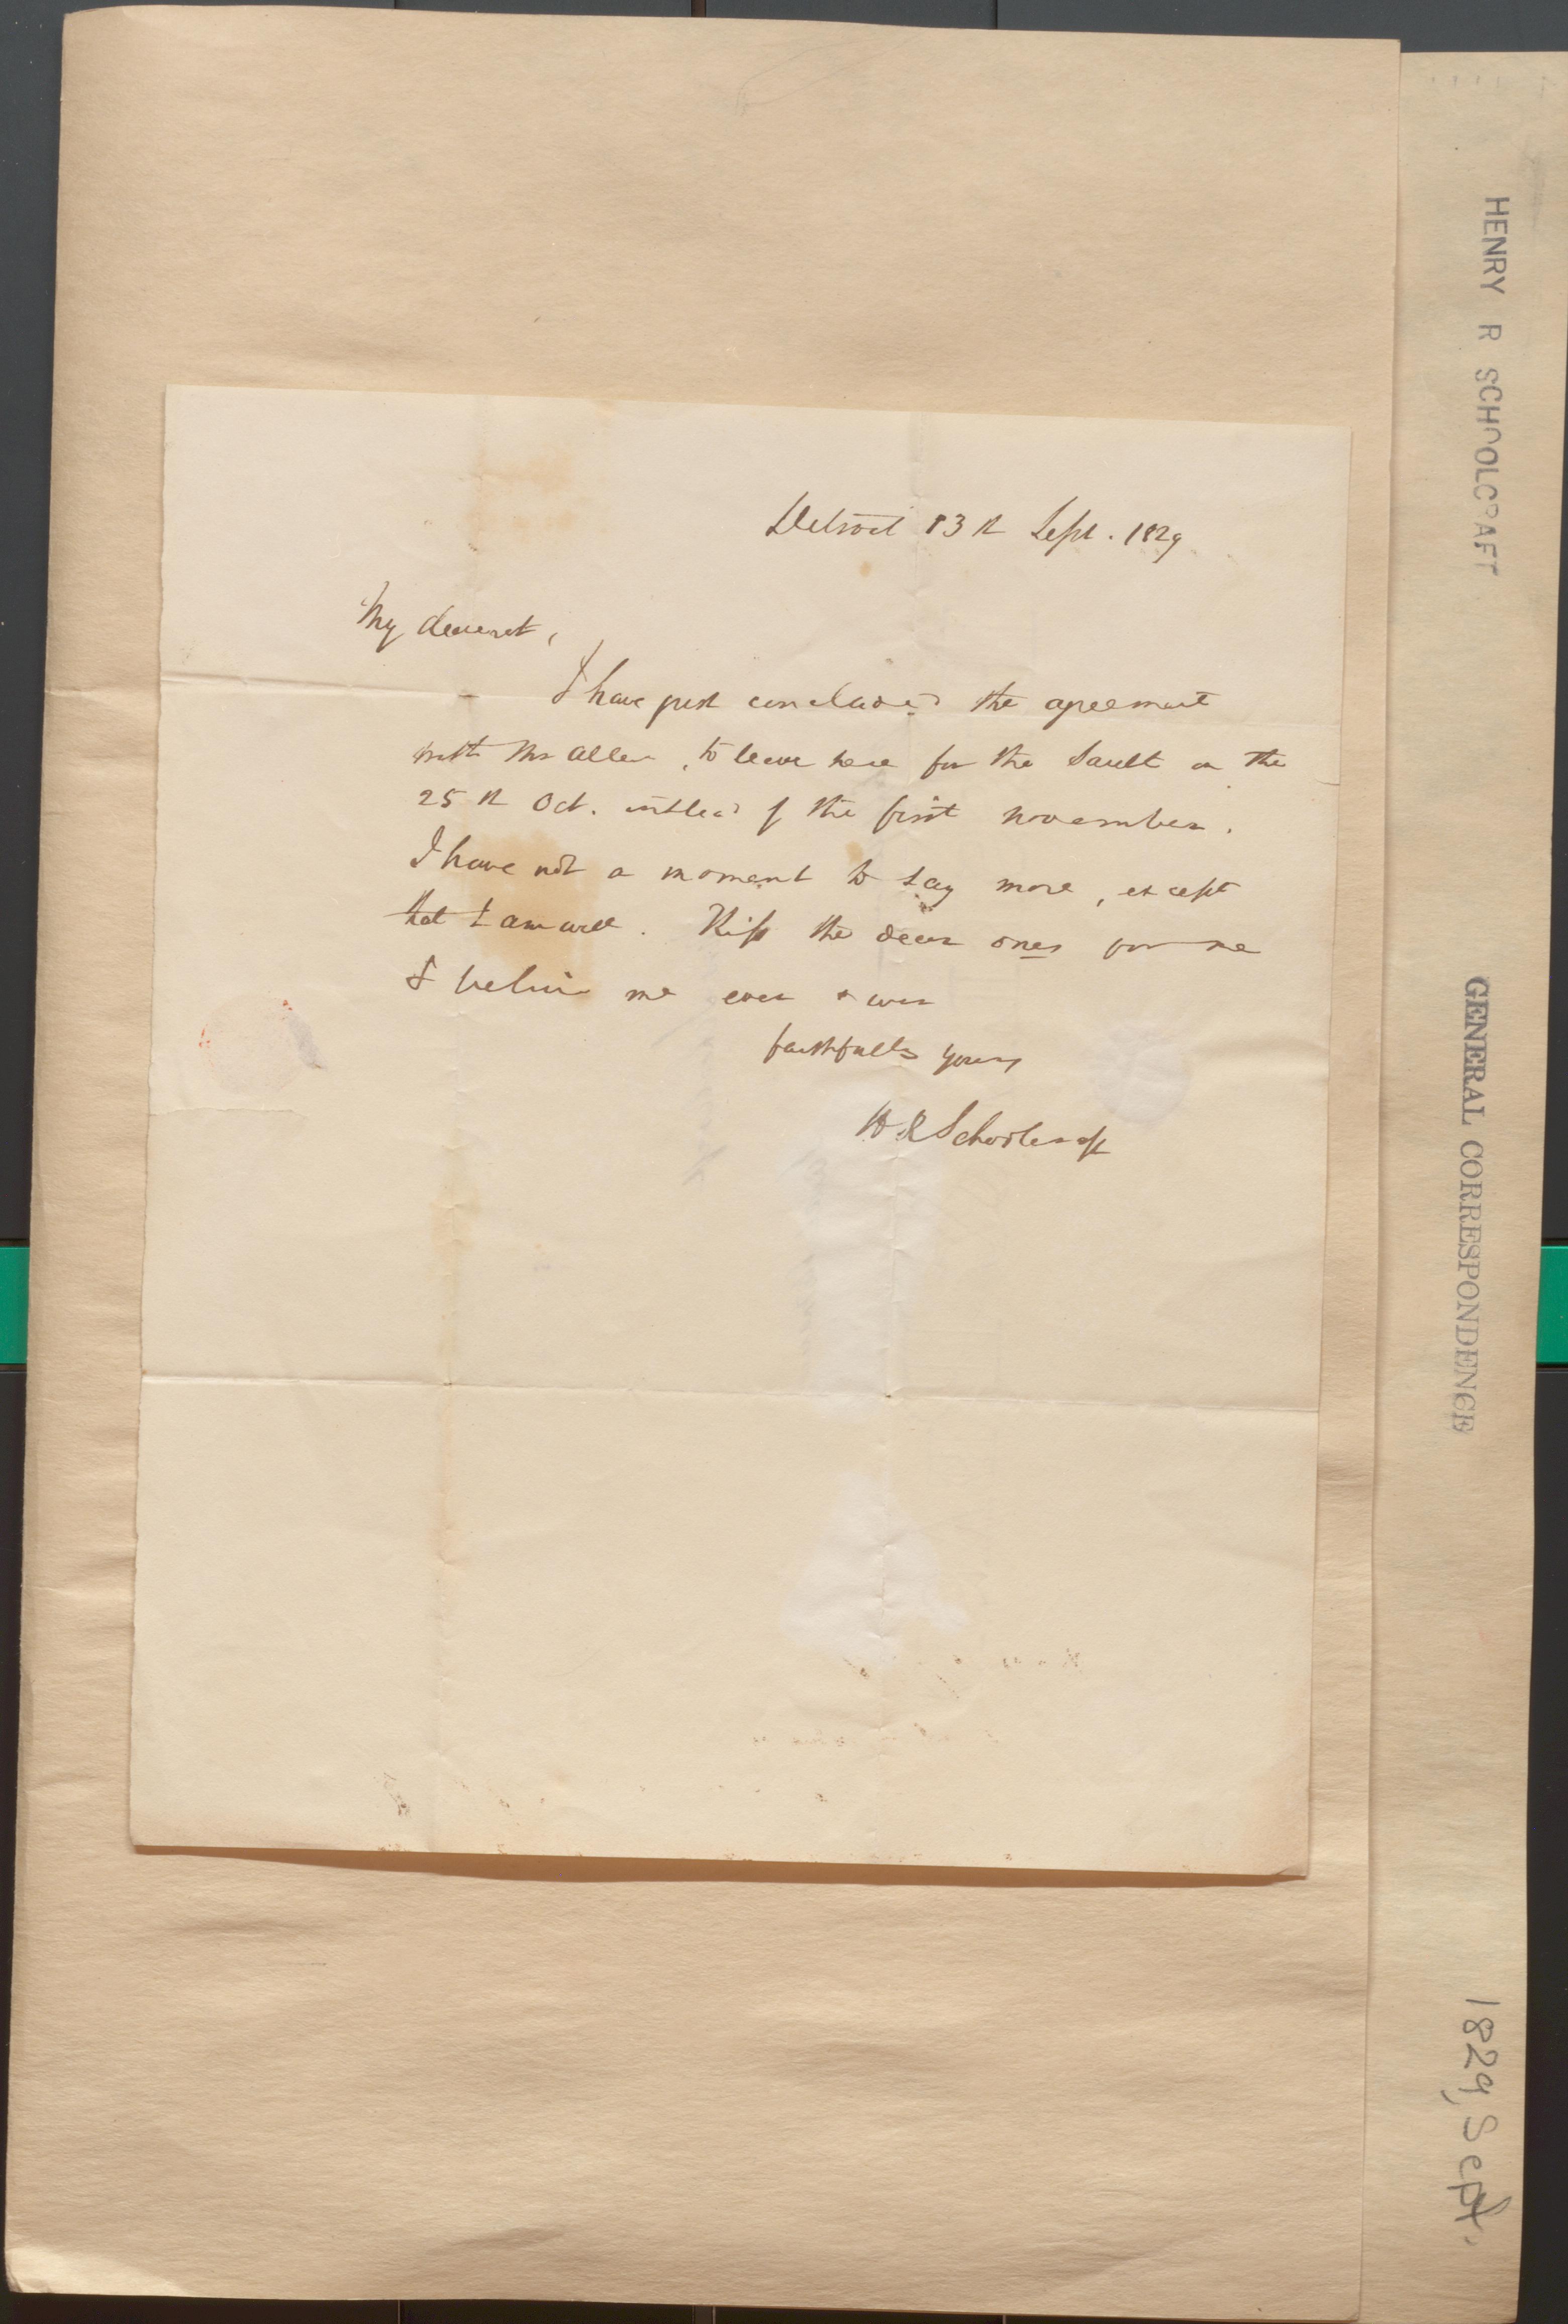 Detroit 13th Sept. 1829
My dearest,
I have just concluded the agreement
with Mr Allen, to leave here for the Sault on the
25th Oct. instead of the first November.
I have not a moment to say more, except
that I am well. Kiss the dear ones for me
& believe me ever & ever
faithfully yours
H.R Schoolcraft
HENRY R SCHOOLCRAFT
GENERAL CORRESPONDENCE
1829, Sept.